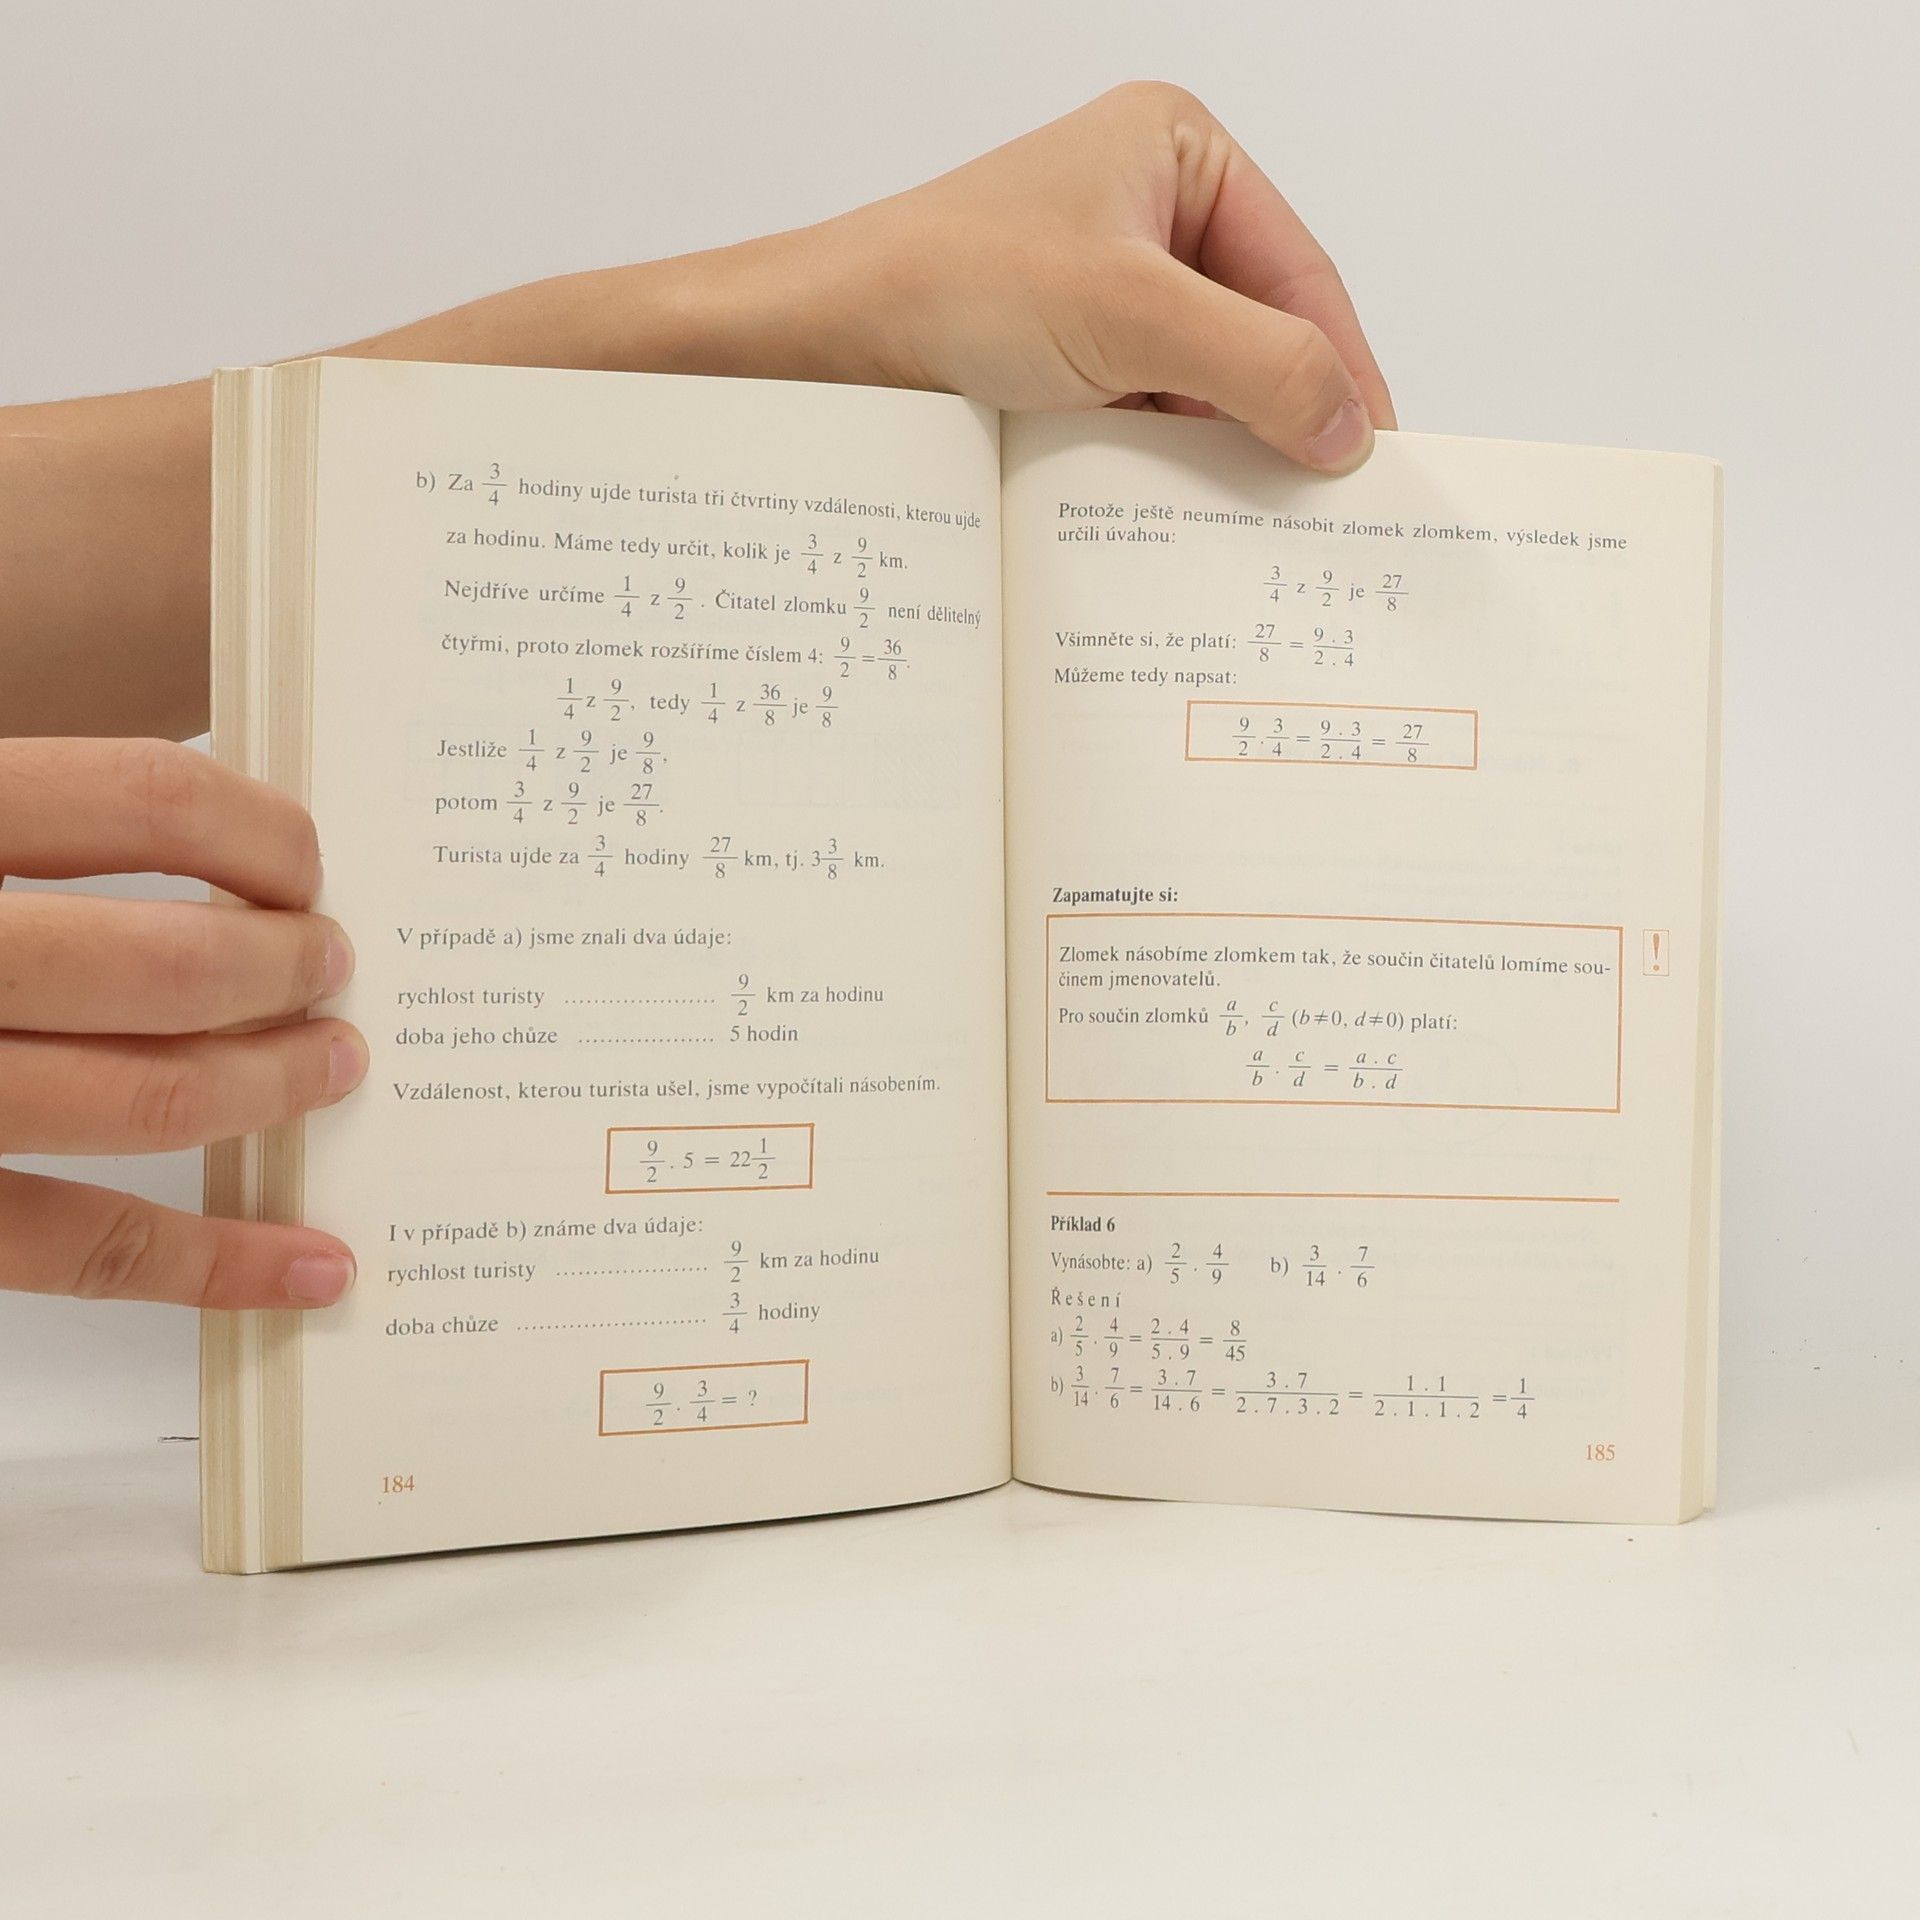 b) Za 3/4 hodiny ujde turista tři čtvrtiny vzdálenosti, kterou ujde
za hodinu. Máme tedy určit, kolik je 3/4 z 9/2 km.
Nejdříve určíme 1/4 z 9/2 . Čitatel zlomku 9/2 není dělitelný
čtyřmi, proto zlomek rozšíříme číslem 4: 9/2 = 36/8.
1/4 z 9/2, tedy 1/4 z 36/8 je 9/8
Jestliže 1/4 z 9/2 je 9/8,
potom 3/4 z 9/2 je 27/8.
Turista ujde za 3/4 hodiny 27/8 km, tj. 3 3/8 km.
V případě a) jsme znali dva údaje:
rychlost turisty .................... 9/2 km za hodinu
doba jeho chůze ................... 5 hodin
Vzdálenost, kterou turista ušel, jsme vypočítali násobením.
9/2 . 5 = 22 1/2
I v případě b) známe dva údaje:
rychlost turisty .................... 9/2 km za hodinu
doba chůze ......................... 3/4 hodiny
9/2 . 3/4 = ?
184
Protože ještě neumíme násobit zlomek zlomkem, výsledek jsme
určili úvahou:
3/4 z 9/2 je 27/8
Všimněte si, že platí: 27/8 = 9 . 3 / 2 . 4
Můžeme tedy napsat:
9/2 . 3/4 = 9 . 3 / 2 . 4 = 27/8
Zapamatujte si:
Zlomek násobíme zlomkem tak, že součin čitatelů lomíme sou-
činem jmenovatelů.
!
Pro součin zlomků a/b, c/d (b≠0, d≠0) platí:
a/b . c/d = a . c / b . d
Příklad 6
Vynásobte: a) 2/5 . 4/9 b) 3/14 . 7/6
Řešení
a) 2/5 . 4/9 = 2 . 4 / 5 . 9 = 8/45
b) 3/14 . 7/6 = 3 . 7 / 14 . 6 = 3 . 7 / 2 . 7 . 3 . 2 = 1 . 1 / 2 . 1 . 1 . 2 = 1/4
185